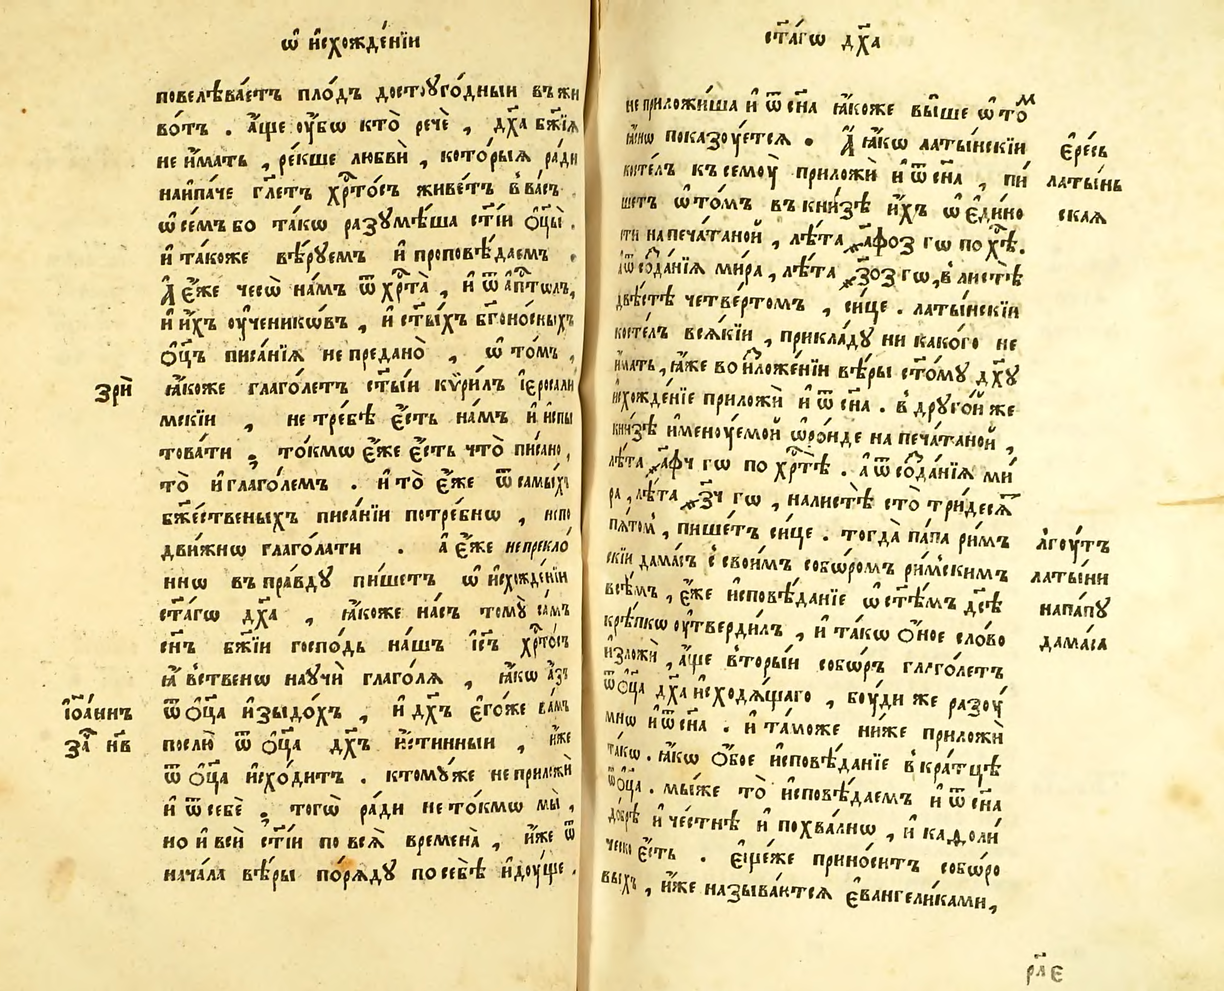 ѡ҆ и҆схожде́нїи
повелѣва́етъ пло́дъ досто ꙋго́дныи въ жи
во́тъ . а҆́ще ᲂу҆́бѡ кто̀ речѐ , дх҃а бж҃їѧ
не и҆́мать , ре́кше любвѝ , кото́рыѧ ра́ди
наи҆па́че гл҃етъ хрⷭ҇то́съ живе́тъ в ва́съ
ѡ҆ се́мъ бо та́кѡ разꙋмѣ́ша ст҃і́и ѻ҆ц҃ы̀ .
и҆ та́коже вѣ́рꙋемъ и҆ проповѣ́даемъ .
А҆ є҆́же чесѡ̀ на́мъ ѿ хрⷭ҇та̀ , и҆ ѿ а҆пⷭ҇тѡлъ ,
и҆ и҆́хъ ᲂу҆ченикѡ́въ , и҆ ст҃ы́хъ бг҃оно́сныхъ
ѻ҆ц҃ъ писа́нїѧ не предано̀ , ѡ҆ то́мъ ,
зрѝ
ꙗ҆́коже глаго́летъ ст҃ы́и кѷри́лъ і҆ерⷭ҇али́
мскїи , не тре́бѣ є҆́сть на́мъ и҆ испы
това́ти . то́кмѡ є҆́же є҆́сть что̀ пи́сано ,
то̀ и҆ глаго́лемъ . и҆ то̀ є҆́же ѿ самы́хъ
бж҃е́ственыхъ писа́нїи потре́бнѡ , непо
дви́жнѡ глаго́лати . а҆ є҆́же непрекло́
ннѡ въ пра́вдꙋ пи́шетъ ѡ҆ и҆схожде́нїи
ст҃а́гѡ дх҃а , ꙗ҆́коже на́съ томꙋ̀ са́мъ
сн҃ъ бж҃їи госпо́дь на́шъ і҆с҃ъ хрⷭ҇то́съ
ꙗ҆́вственѡ наꙋчѝ глаго́лѧ , ꙗ҆́кѡ а҆́зъ
і҆ѡа́ннъ
ѿ ѻ҆ц҃а и҆зыдо́хъ , и҆ дх҃ъ є҆го́же ва́мъ
за̀ н҃в
послю̀ ѿ ѻ҆ц҃а дх҃ъ и҆́стинныи , и҆́же
ѿ ѻ҆ц҃а и҆схо́дитъ . ктомꙋ́же не приложѝ
и҆ ѿ себѐ , тогѡ̀ ра́ди не то́кмѡ мы̀ ,
но и҆ всѝ ст҃і́и по всѧ̀ времена̀ , и҆́же ѿ
нача́ла вѣ́ры по́рѧдꙋ по себѣ̀ и҆дꙋ́ще .
ст҃а́гѡ дх҃а
не приложи́ша и҆ ѿ сн҃а ꙗ҆́коже вы́ше ѡ҆ то́м
ꙗ҆́снѡ показꙋ́ется . А҆ ꙗ҆́кѡ латы́нскїи
є҆́ресь
косте́лъ к семꙋ̀ приложѝ и҆ ѿ сн҃а , пи́
латы́нь
шетъ ѡ҆ то́мъ въ кни́зѣ и҆́хъ ѡ҆ є҆ди́но
ская
сти напеча́таной , лѣ́та ҂аф҃оз гѡ по хрⷭ҇тѣ̀ .
а҆ ѿ созда́нїѧ ми́ра , лѣ́та ҂з҃оз гѡ , в листѣ̀
двѣ́стѣ четве́ртомъ , си́це . латы́нскїи
косте́лъ всѧ́кїи , прикла́дꙋ ни како́гѡ не
и҆́мать , ꙗ҆́же во и҆зложе́нїи вѣ́ры ст҃о́мꙋ дх҃ꙋ
и҆схожде́нїе приложѝ и҆ ѿ сн҃а . в дрꙋго́й же
кни́зѣ и҆менꙋ́емой ѡ҆ро́нде напеча́таной ,
лѣ́та ҂аф҃ч гѡ по хрⷭ҇тѣ̀ . а҆ ѿ созда́нїѧ ми́
ра , лѣ́та ҂з҃ч гѡ , на листѣ̀ сто̀ три́десѧⷮ
пѧ́томъ , пи́шетъ си́це . тогда̀ па́па ри́мъ
лгꙋ́тъ
скїи дама́съ с свои́мъ собѡ́ромъ ри́мскимъ
латы́ни
всѣ́мъ , є҆́же и҆сповѣ́данїе ѡ҆ ст҃ѣ́мъ дс҃ѣ
на па́пꙋ
крѣ́пкѡ ᲂу҆тверди́лъ , и҆ та́кѡ ѻ҆́ное сло́во
дама́са
и҆зложѝ , а҆́ще вторы́и собѡ́ръ глаго́летъ
ѿ ѻ҆ц҃а дх҃а и҆сходѧ́щаго , бꙋ́ди же разꙋ́
мнѡ и҆ ѿ сн҃а . и҆ та́може ни́же приложѝ
та́кѡ . ꙗ҆́кѡ ѻ҆́бое и҆сповѣ́данїе вкра́тцѣ
ѿ ѻ҆ц҃а . мы́же то̀ и҆сповѣ́даемъ и҆ ѿ сн҃а
до́брѣ и҆ че́стнѣ и҆ похва́лнѡ , и҆ каѳоли́
ческо є҆́сть . є҆ще́же прино́ситъ собѡ́ро
выхъ , и҆́же называ́ютсѧ є҆вангели́ками ,
рл҃е